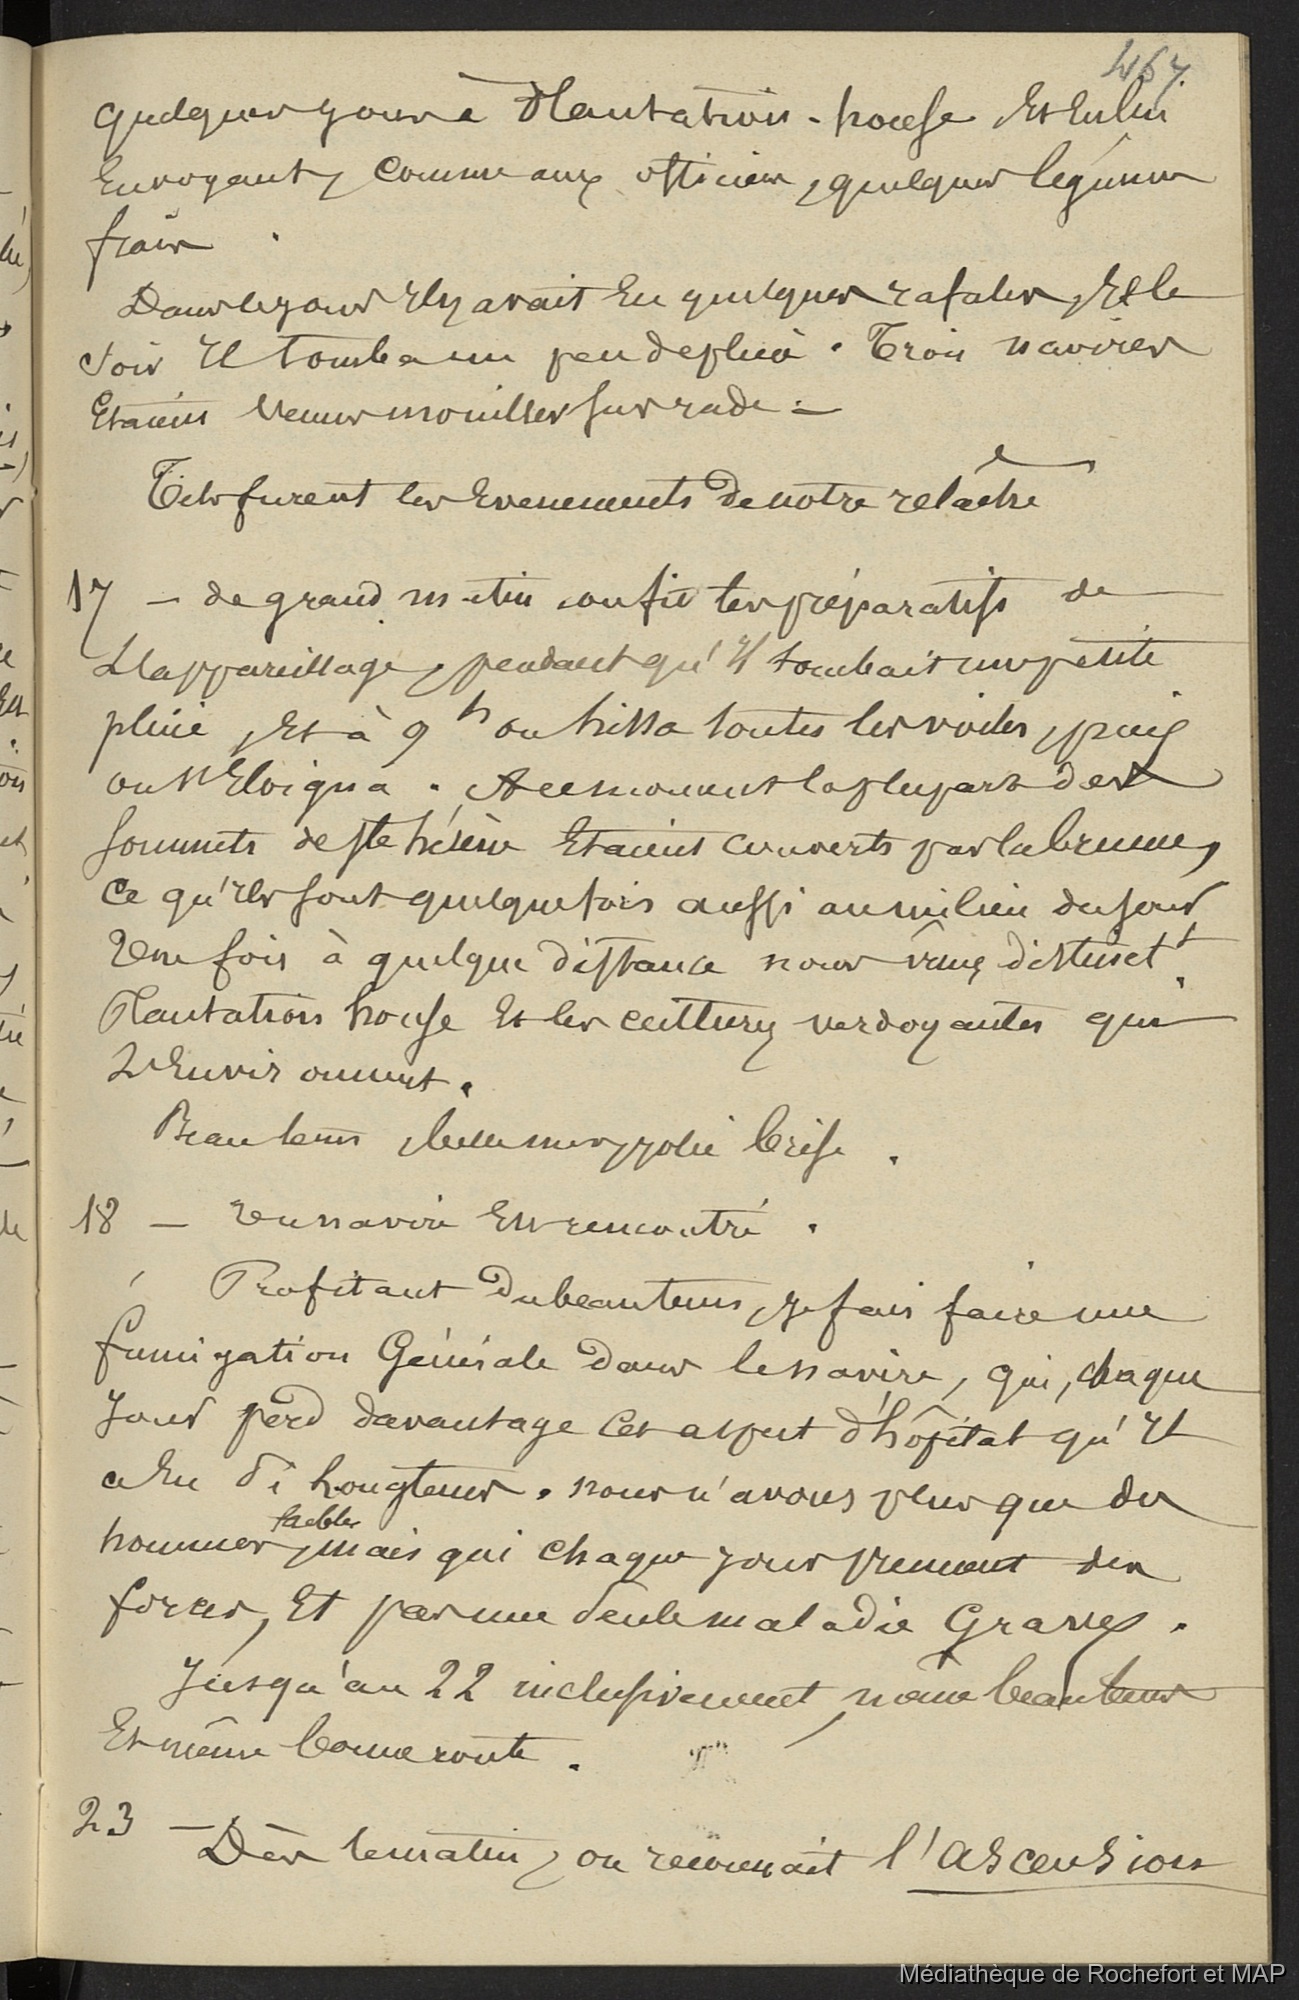 467.
quelques jours à Plantation-house et en lui
envoyant, comme aux officiers, quelques légumes
frais.
Dans le jour il y avait eu quelques rafales, et le
soir il tomba un peu de pluie. Trois navires
étaient venus mouiller sur rade.
Tels furent les évenements de notre relâche
17 — de grand matin on fit les préparatifs de
l'appareillage, pendant qu'il tombait une petite
pluie, et à 9h on hissa toutes les voiles, puis
on s'éloigna. A ce moment la plupart des
sommets de Ste hélène étaient couverts par la brume,
ce qu'ils sont quelquefois aussi au milieu du jour
une fois à quelque distance nous vîmes distinctt.
Plantation house et les cultures verdoyantes qui
l'environnent.
Beau temps, belle mer, jolie brise.
18 — un navire est rencontré.
Profitant du beau temps, je fais faire une
fumigation Générale dans le navire, qui, chaque
jour perd davantage cet aspect d'hôpital qu'il
a eu si longtemps. nous n'avons plus que des
hommes faibles, mais qui chaque jour prennent des
forces, et pas une seule maladie Grave.
Jusqu'au 22 inclusivement, même beau temps
et même bonne route.
23 — Dès le matin, on reconnait l'Ascension
Médiathèque de Rochefort et MAP